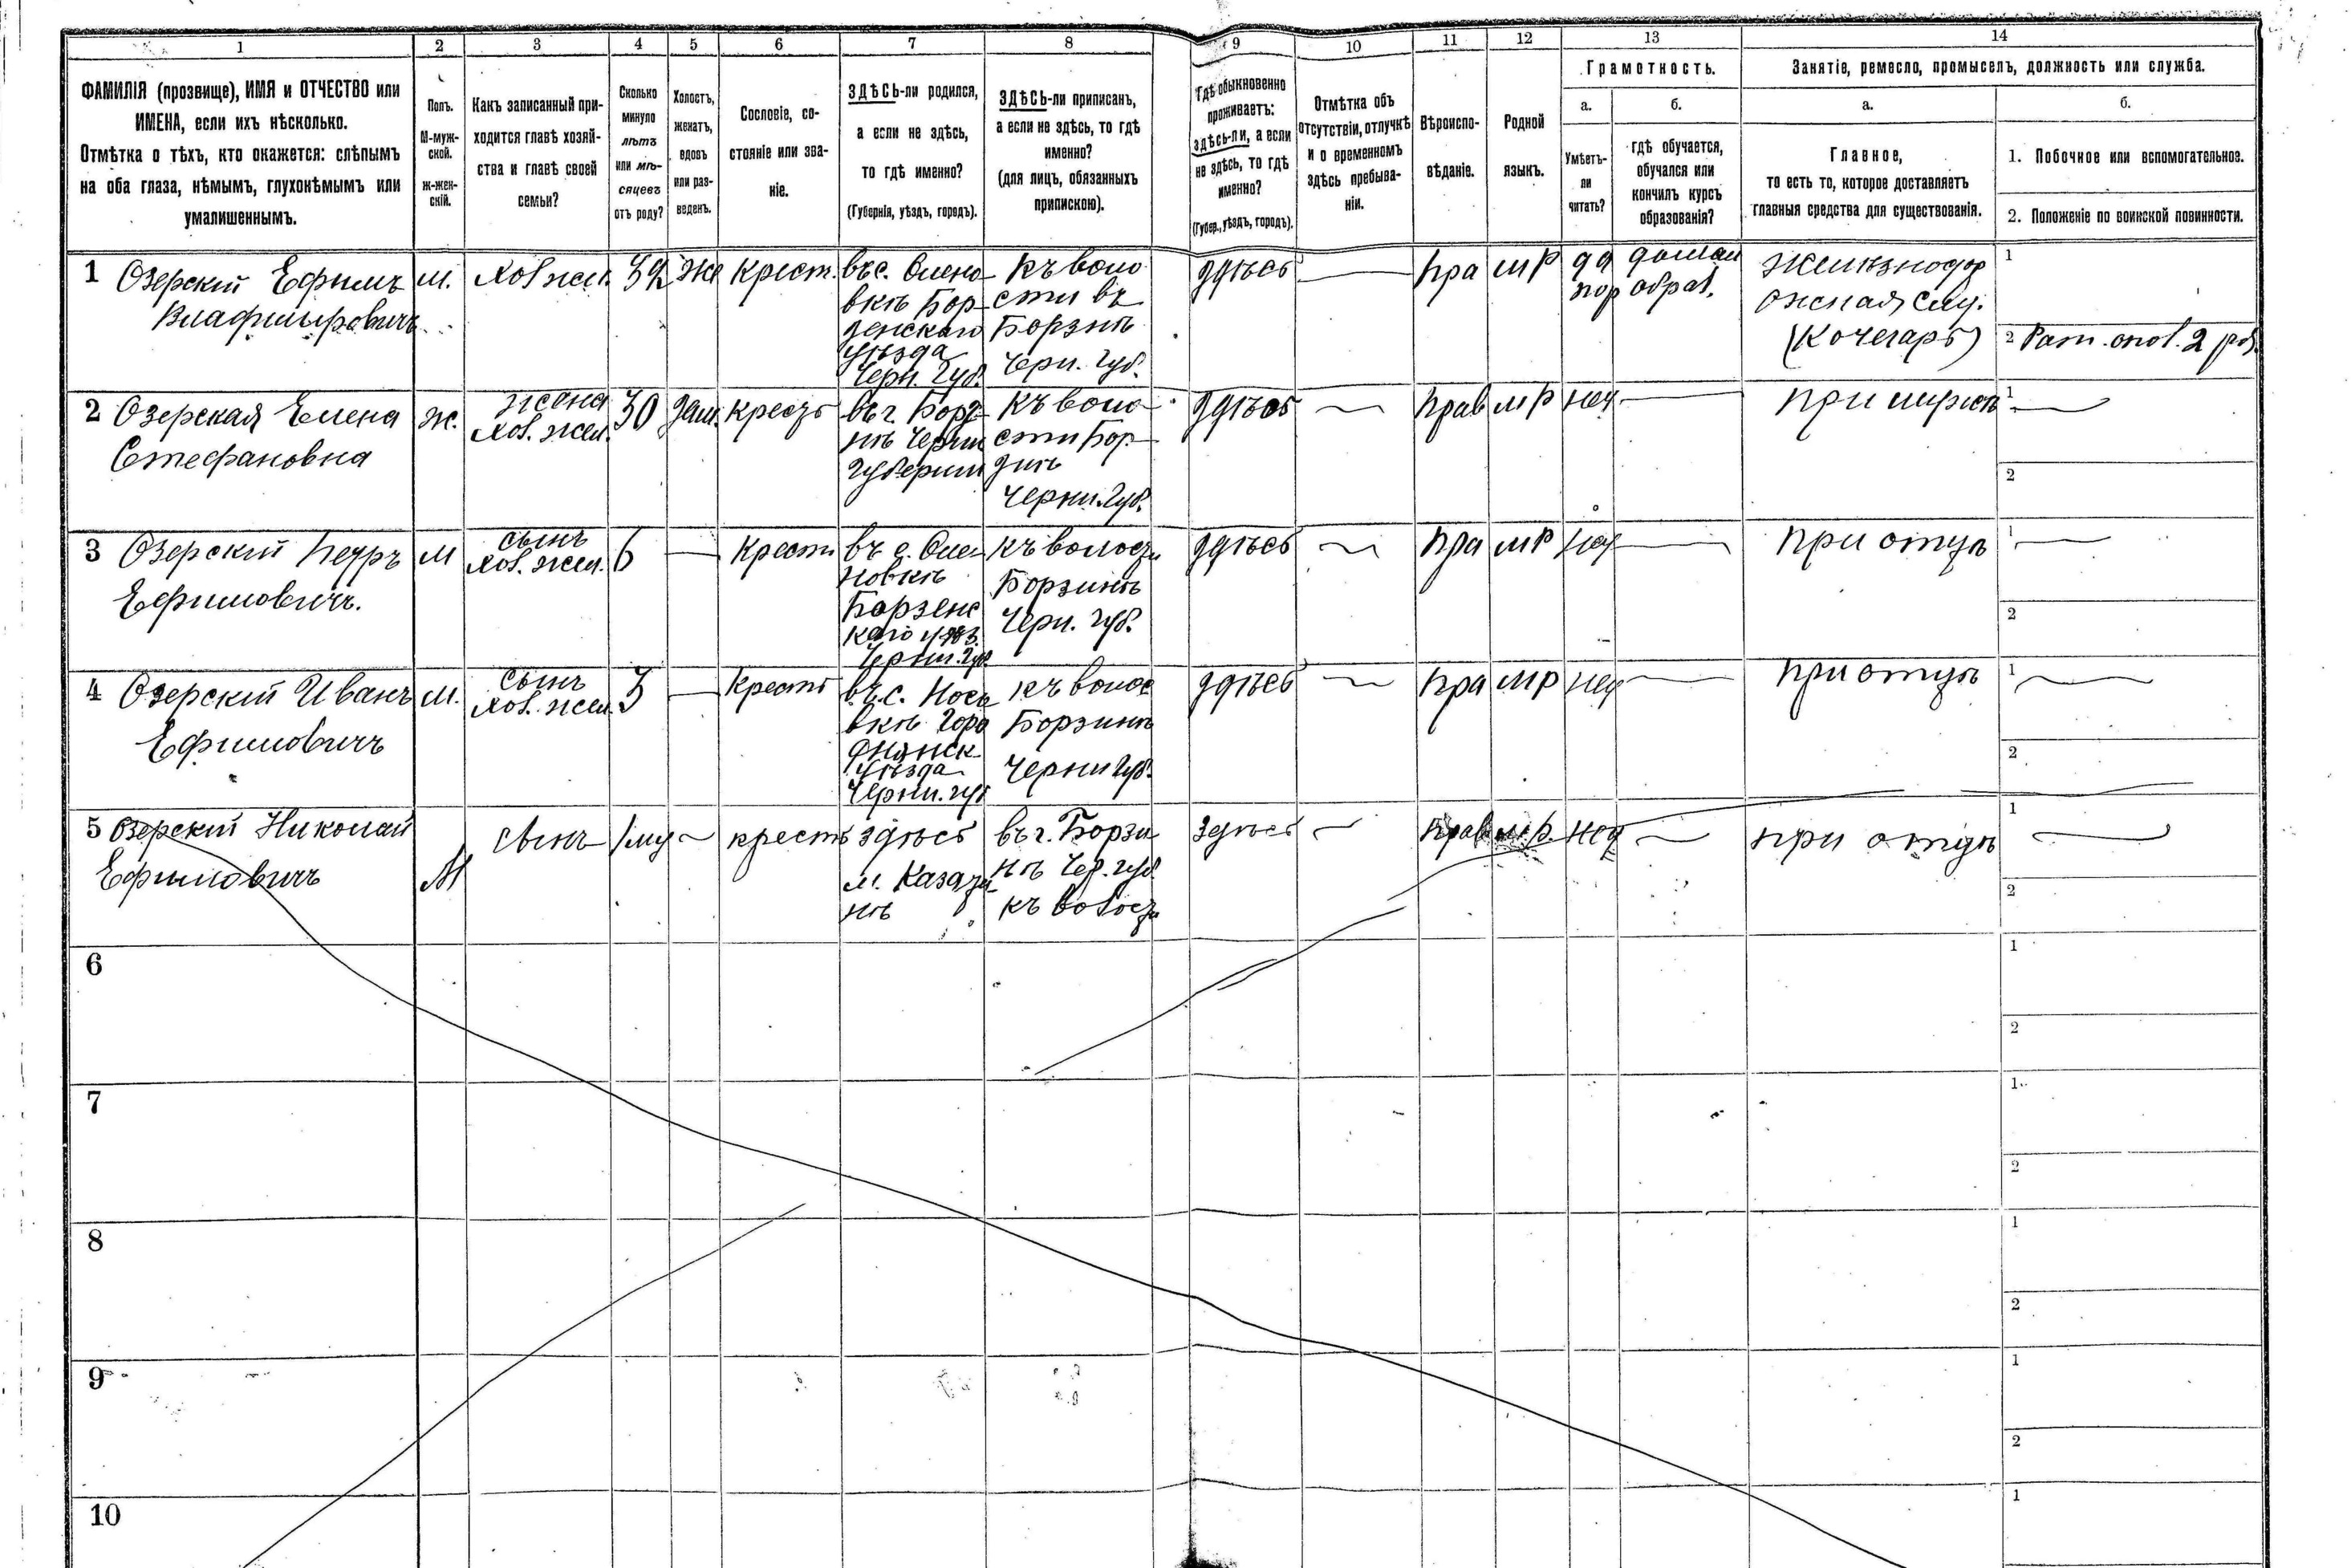 1 2 3 4 5 6 7 8 9 10 11 12 13 14
ФАМИЛІЯ (прозвище), ИМЯ и ОТЧЕСТВО или
ИМЕНА, если ихъ нѣсколько.
Отмѣтка о тѣхъ, кто окажется: слѣпымъ
на оба глаза, нѣмымъ, глухонѣмымъ или
умалишеннымъ.
Полъ.
М-муж-
ской.
ж-жен-
скій.
Какъ записанный при-
ходится главѣ хозяй-
ства и главѣ своей
семьи?
Сколько
минуло
лѣтъ
или мѣ-
сяцевъ
отъ роду?
Холостъ,
женатъ,
вдовъ
или раз-
веденъ.
Сословіе, со-
стояніе или зва-
ніе.
ЗДѢСЬ-ли родился,
а если не здѣсь,
то гдѣ именно?
(Губернія, уѣздъ, городъ).
ЗДѢСЬ-ли приписанъ,
а если не здѣсь, то гдѣ
именно?
(для лицъ, обязанныхъ
припискою).
Гдѣ обыкновенно
проживаетъ:
здѣсь-ли, а если
не здѣсь, то гдѣ
именно?
(Губер., уѣздъ, городъ).
Отмѣтка объ
отсутствіи, отлучкѣ
и о временномъ
здѣсь пребыва-
ніи.
Вѣроиспо-
вѣданіе.
Родной
языкъ.
Грамотность.
а.
Умѣетъ-
ли
читать?
б.
гдѣ обучается,
обучался или
кончилъ курсъ
образованія?
Занятіе, ремесло, промыселъ, должность или служба.
а.
Главное,
то есть то, которое доставляетъ
главныя средства для существованія.
б.
1. Побочное или вспомогательное.
2. Положеніе по воинской повинности.
1 Озерскій Ефимъ
Владиміровичъ
м.
32
же
крест.
въ с. Олено
вкѣ Бор
зенскаго
уѣзда
Черн. Губ.
Къ воло
сти въ
Борзнѣ
Черн. Губ.
здѣсь
пра
мр
да
домаш
образ.
железнодор
ожная слу.
(Кочегаръ)
1
2 Рат. опол. 2 раз.
2 Озерская Елена
Стефановна
ж.
жена
30
зам.
крест
въ г. Борз
нѣ Черни
губерніи
Къ воло
сти Бор
знѣ
Черни. Губ.
здѣсь
прав
мр
нет
при мужѣ
1
2
3 Озерскій Петръ
Ефимовичъ.
м
сынъ
6
крест
въ с. Олен
новкѣ
Борзенс
каго уѣз.
Черни. Губ.
къ волости
Борзинѣ
Черн. губ.
здѣсь
пра
мр
нет
при отцѣ
1
2
4 Озерскій Иванъ
Ефимовичъ
м.
сынъ
3
крест
въ с. Носо
вкѣ Горо
днянск
уѣзда
Черни. губ
къ волос
Борзинѣ
Черни губ.
здѣсь
пра
мр
нет
при отцѣ
1
2
5 Озерскій Николай
Ефимовичъ
М
сынъ
крест
здѣсь
м. Казати
нѣ
въ г. Борзи
нѣ Чер. губ.
къ волости
здѣсь
прав
мр.
нет
при отцѣ
1
2
6
1
2
7
1
2
8
1
2
9
1
2
10
1